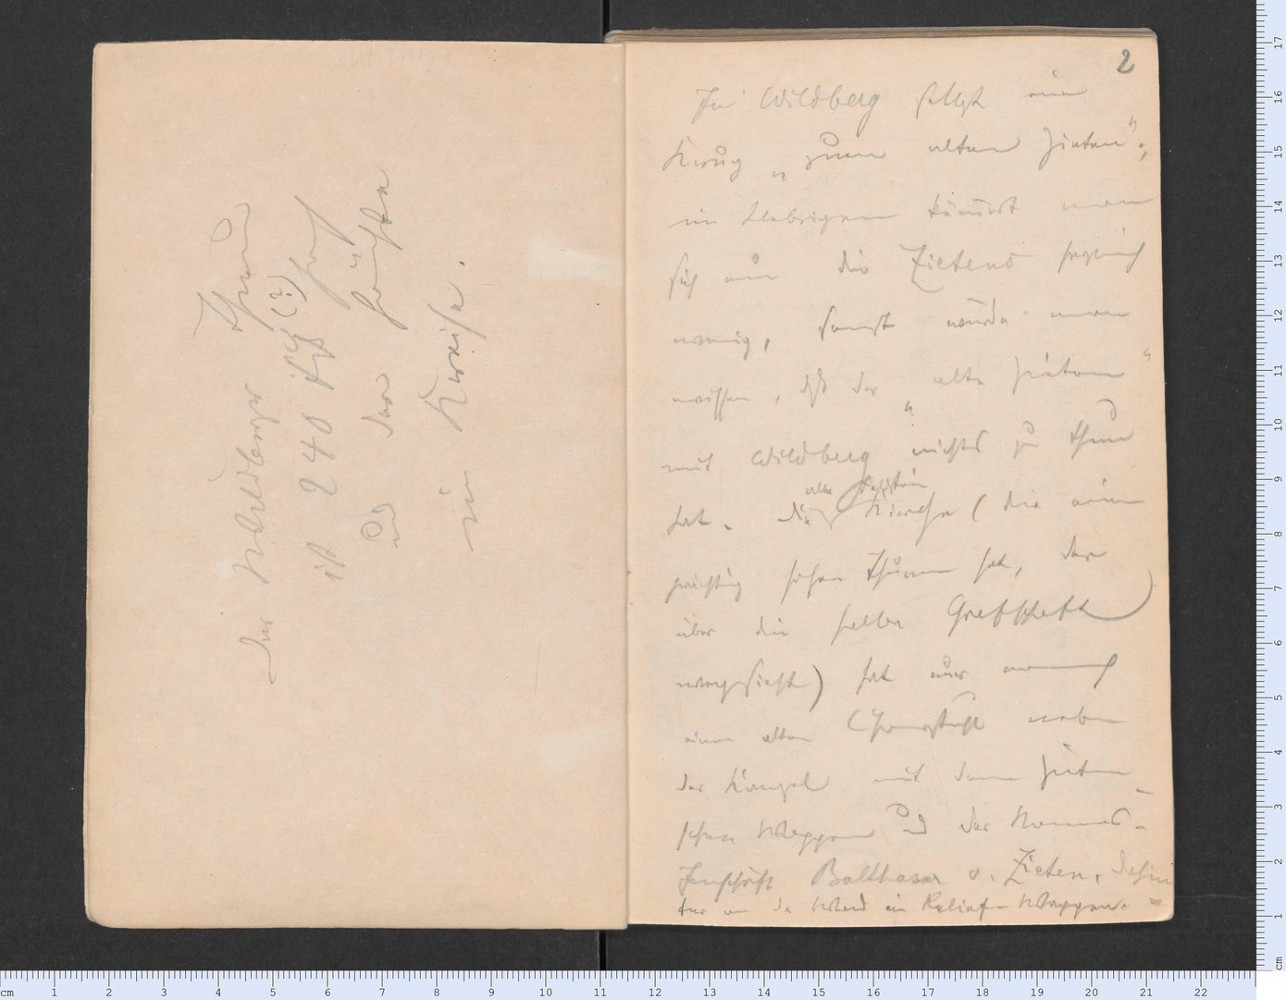 Der Wildberger Thurm
ist 240 Fuß (?) hoch
und der höchste
im Kreise.
2
In Wildberg selbst ein
Krug „zum alten Zieten“;
im Uebrigen kümmert man
sich um die Zietens herzlich
wenig, sonst würde man
wissen, daß der „alte Zieten“
mit Wildberg nichts zu thun
hat. Die alte Feldstein
Kirche (die einen
prächtig hohen Thurm hat, der
über die halbe Grafschaft
wegsieht) hat nur noch
einen alten Chorstuhl neben
der Kanzel mit dem Zieten-
schen Wappen und der Namens-
Inschrift Balthasar v. Zieten, dahin
ter an der Wand ein Relief-Wappen.